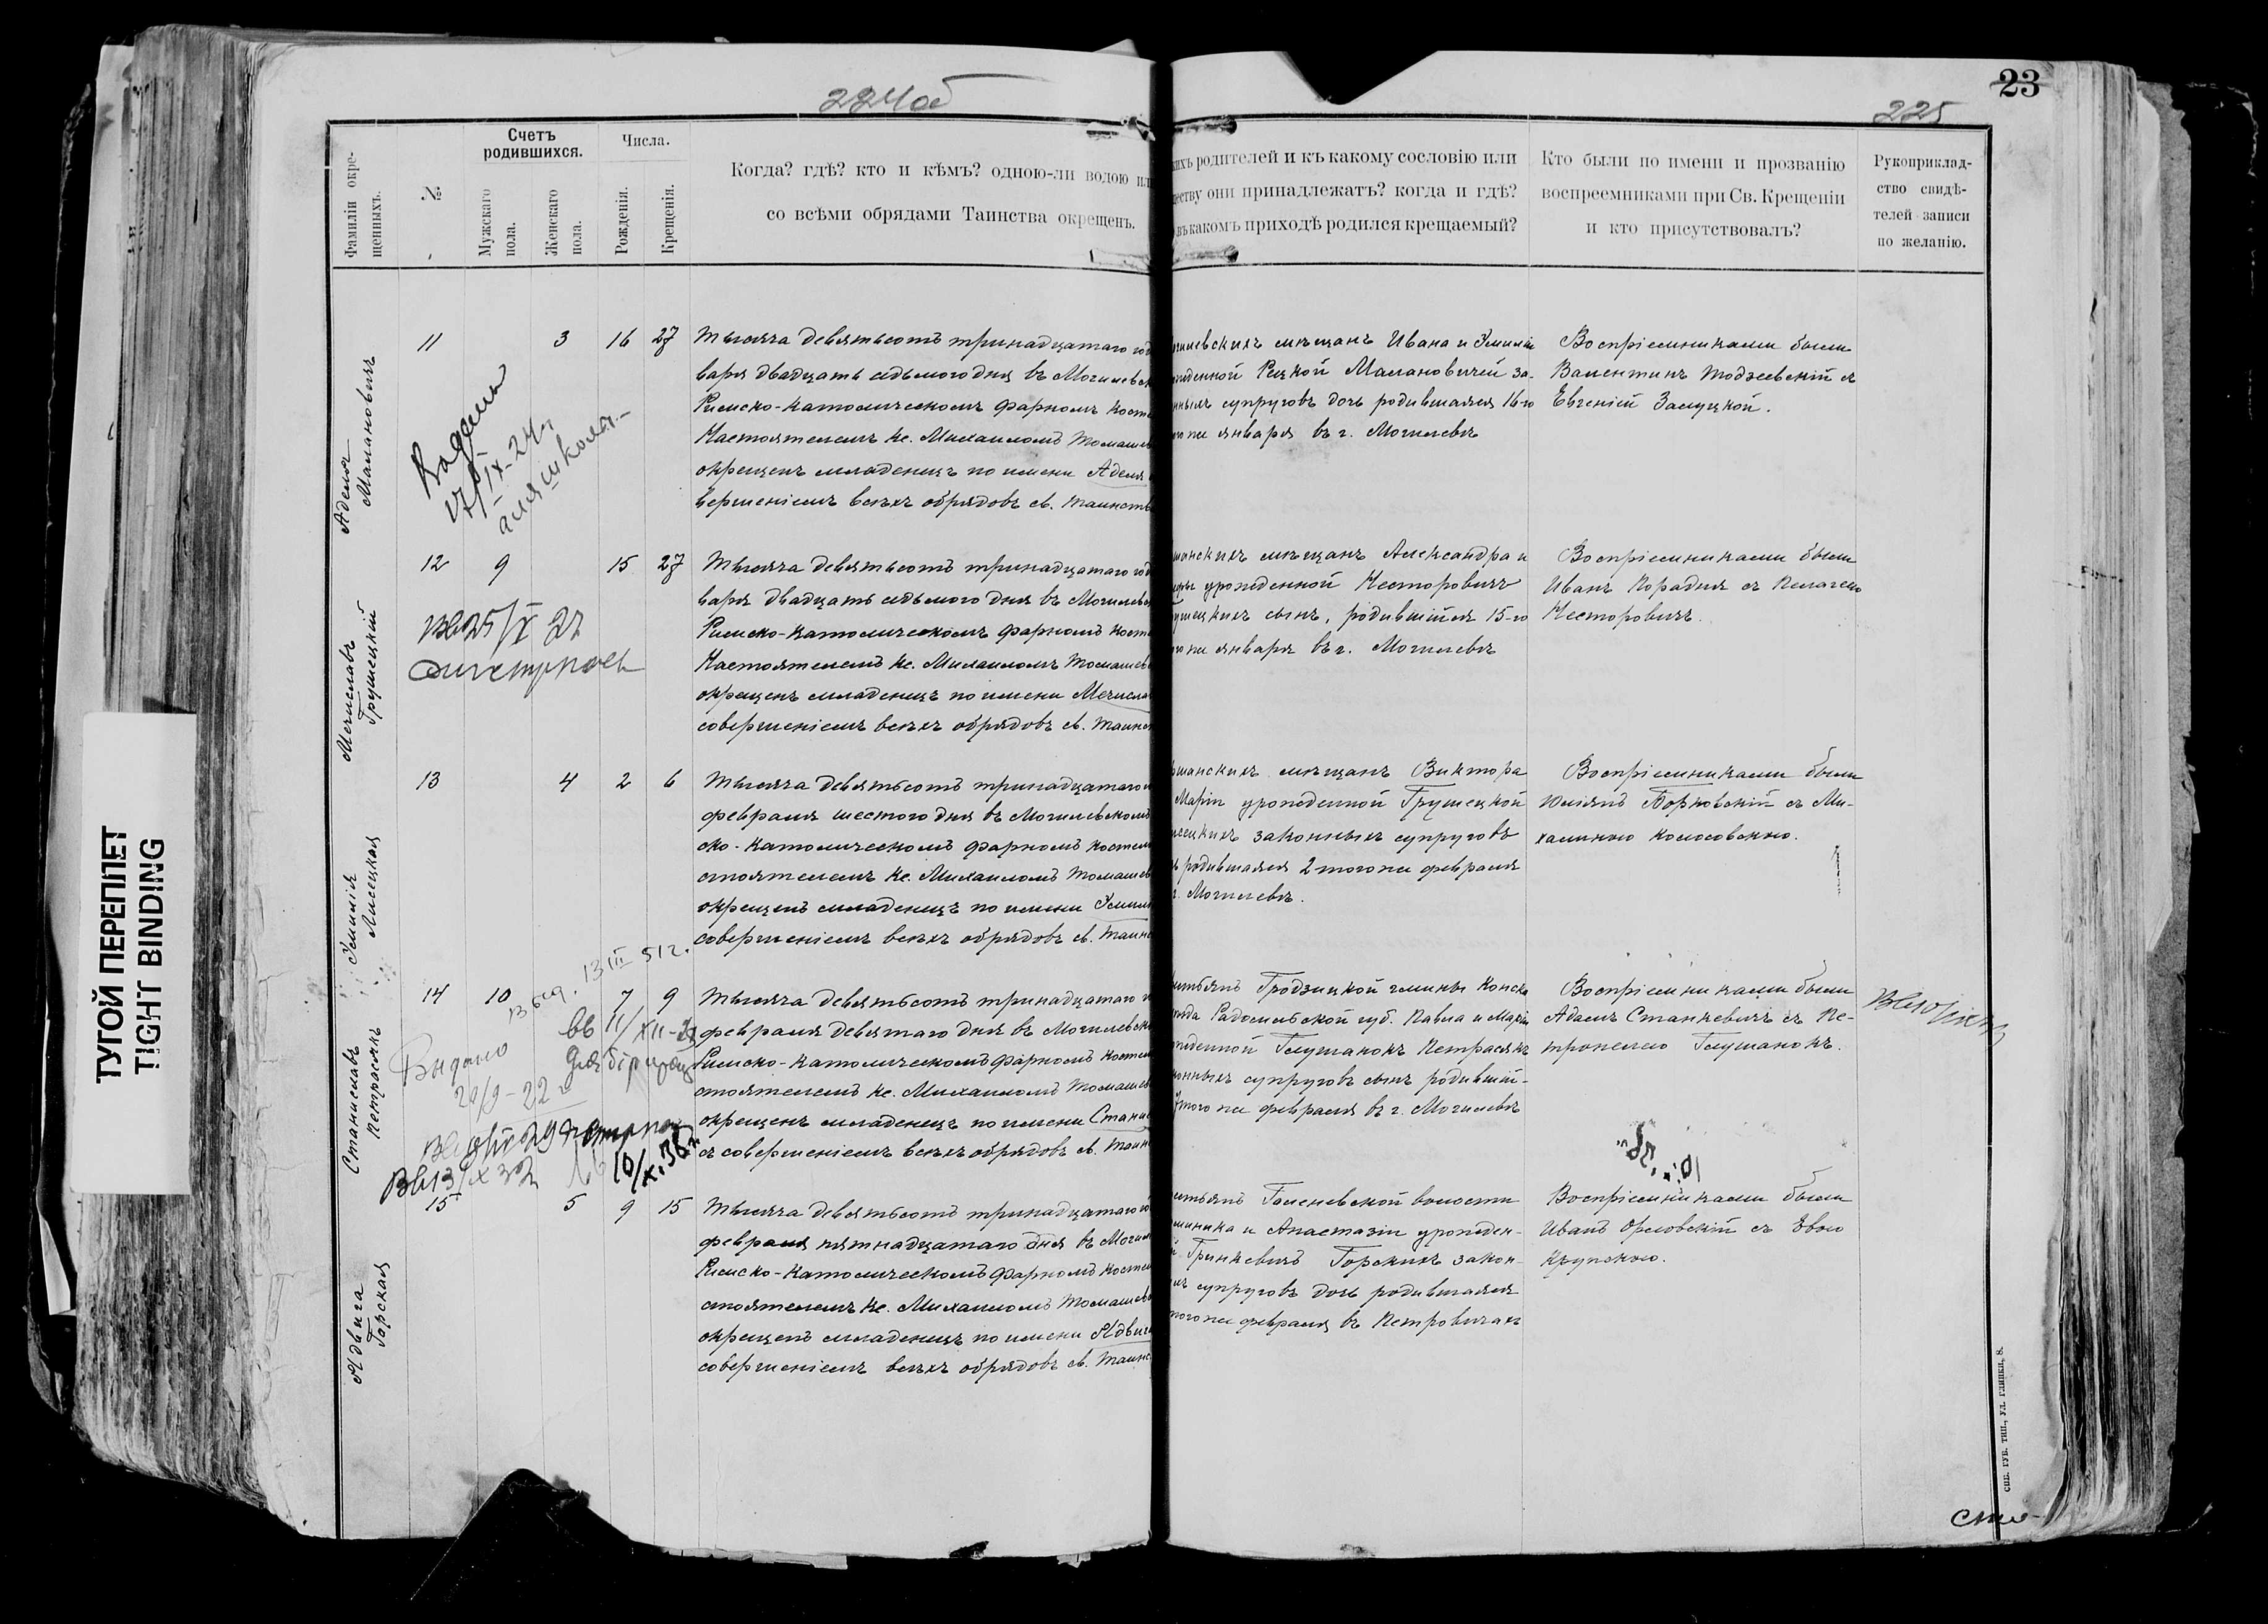 224об
23
225
ТУГОЙ ПЕРЕПЛЕТ
TIGHT BINDING
Фамиліи окре-
щенныхъ.
№
Счетъ
родившихся.
Мужскаго
пола.
Женскаго
пола.
Числа.
Рожденія.
Крещенія.
Когда? гдѣ? кто и кѣмъ? одною-ли водою ил
со всѣми обрядами Таинства окрещенъ.
кихъ родителей и къ какому сословію или
честву они принадлежатъ? когда и гдѣ?
въ какомъ приходѣ родился крещаемый?
Кто были по имени и прозванію
воспреемниками при Св. Крещеніи
и кто присутствовалъ?
Рукоприклад-
ство свидѣ-
телей записи
по желанію.
Аделя
Малановичъ
11 3 16 27
Тысяча девятьсотъ тринадцатаго год
варя двадцать седьмого дня въ Могилевск
Римско-Католическомъ фарномъ косте
Настоятелемъ Кс. Михаиломъ Томашев
окрещенъ младенецъ по имени Аделя
вершеніемъ всѣхъ обрядовъ св. Таинств
гилевскихъ мѣщанъ Ивана и Эмиліи
жденной Рецкой Малановичей за-
нныхъ супруговъ дочь родившаяся 16-го
же января въ г. Могилевѣ
Воспріемниками были
Валентинъ Тодзеевскій съ
Евгеніей Залуцкой.
Мечиславъ
Грушецкій
12 9 15 27
Вы 25/X 27
Тысяча девятьсотъ тринадцатаго год
варя двадцать седьмого дня въ Могилевск
Римско-Католическомъ фарномъ косте
Настоятелемъ Кс. Михаиломъ Томашев
окрещенъ младенецъ по имени Мечисла
совершеніемъ всѣхъ обрядовъ св. Таинс
шанскихъ мѣщанъ Александра и
урожденной Несторовичъ
ушецкихъ сынъ, родившійся 15-го
же января въ г. Могилевѣ
Воспріемниками были
Иванъ Порадня съ Пелагеею
Несторовичъ.
Эмилія
Лисецкая
13 4 2 6
Тысяча девятьсотъ тринадцатаго
февраля шестого дня въ Могилевскомъ
ско-Католическомъ фарномъ костел
стоятелемъ Кс. Михаиломъ Томашев
окрещенъ младенецъ по имени Эмили
совершеніемъ всѣхъ обрядовъ св. Таинс
шанскихъ мѣщанъ Виктора
Маріи урожденной Грушецкой
исецкихъ законныхъ супруговъ
родившаяся 2 того же февраля
г. Могилевѣ.
Воспріемниками были
Юліянъ Борковскій съ Ми-
халиною Колосовскою.
Станиславъ
Петрасякъ
14 10 7 9
13 III 51 г.
Выдано
20/9-22 г
10/X.36 г
Тысяча девятьсотъ тринадцатаго
февраля девятаго дня въ Могилевск
Римско-Католическомъ фарномъ костел
стоятелемъ Кс. Михаиломъ Томашев
окрещенъ младенецъ по имени Стани
съ совершеніемъ всѣхъ обрядовъ св. Таин
стьянъ Гродзицкой гмины Конска
Радомской губ. Павла и Маріи
жденной Глушанокъ Петрасякъ
онныхъ супруговъ сынъ родившій-
7 того же февраля въ г. Могилевѣ
Воспріемниками были
Адамъ Станкевичъ съ Пе-
тронелею Глушанокъ.
Ядвига
Горская
15 5 9 15
Тысяча девятьсотъ тринадцатаго
февраля пятнадцатаго дня въ Могил
Римско-Католическомъ фарномъ костел
стоятелемъ Кс. Михаиломъ Томашев
окрещенъ младенецъ по имени Ядвиг
совершеніемъ всѣхъ обрядовъ св. Таинс
стьянъ волости
миника и Анастазіи урожден-
Гринкевичъ Горскихъ закон-
супруговъ дочь родившаяся
того же февраля въ Петровичахъ
Воспріемниками были
Иванъ Орловскій съ Евою
Крупскою.
СПБ. ГУБ. ТИП., УЛ. ГЛИНКИ, 8.